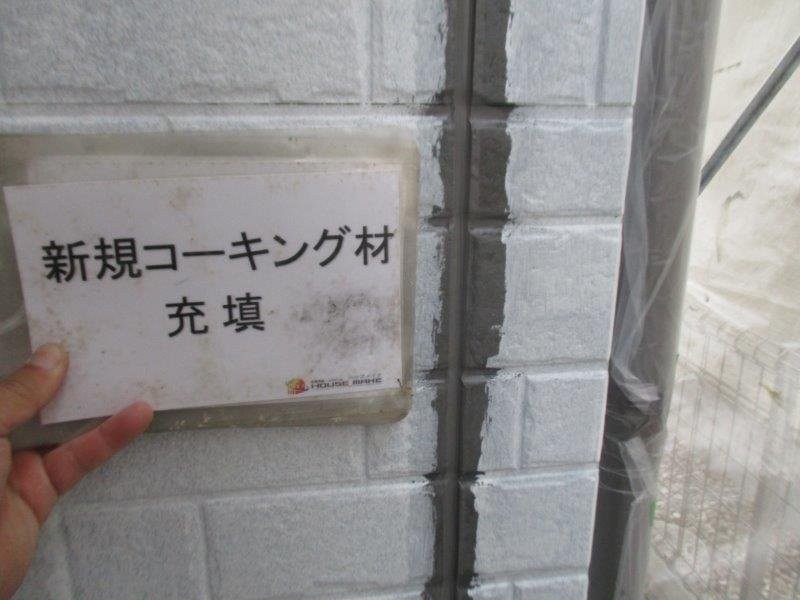 新規コーキング材
充填
HOUSE MAKE